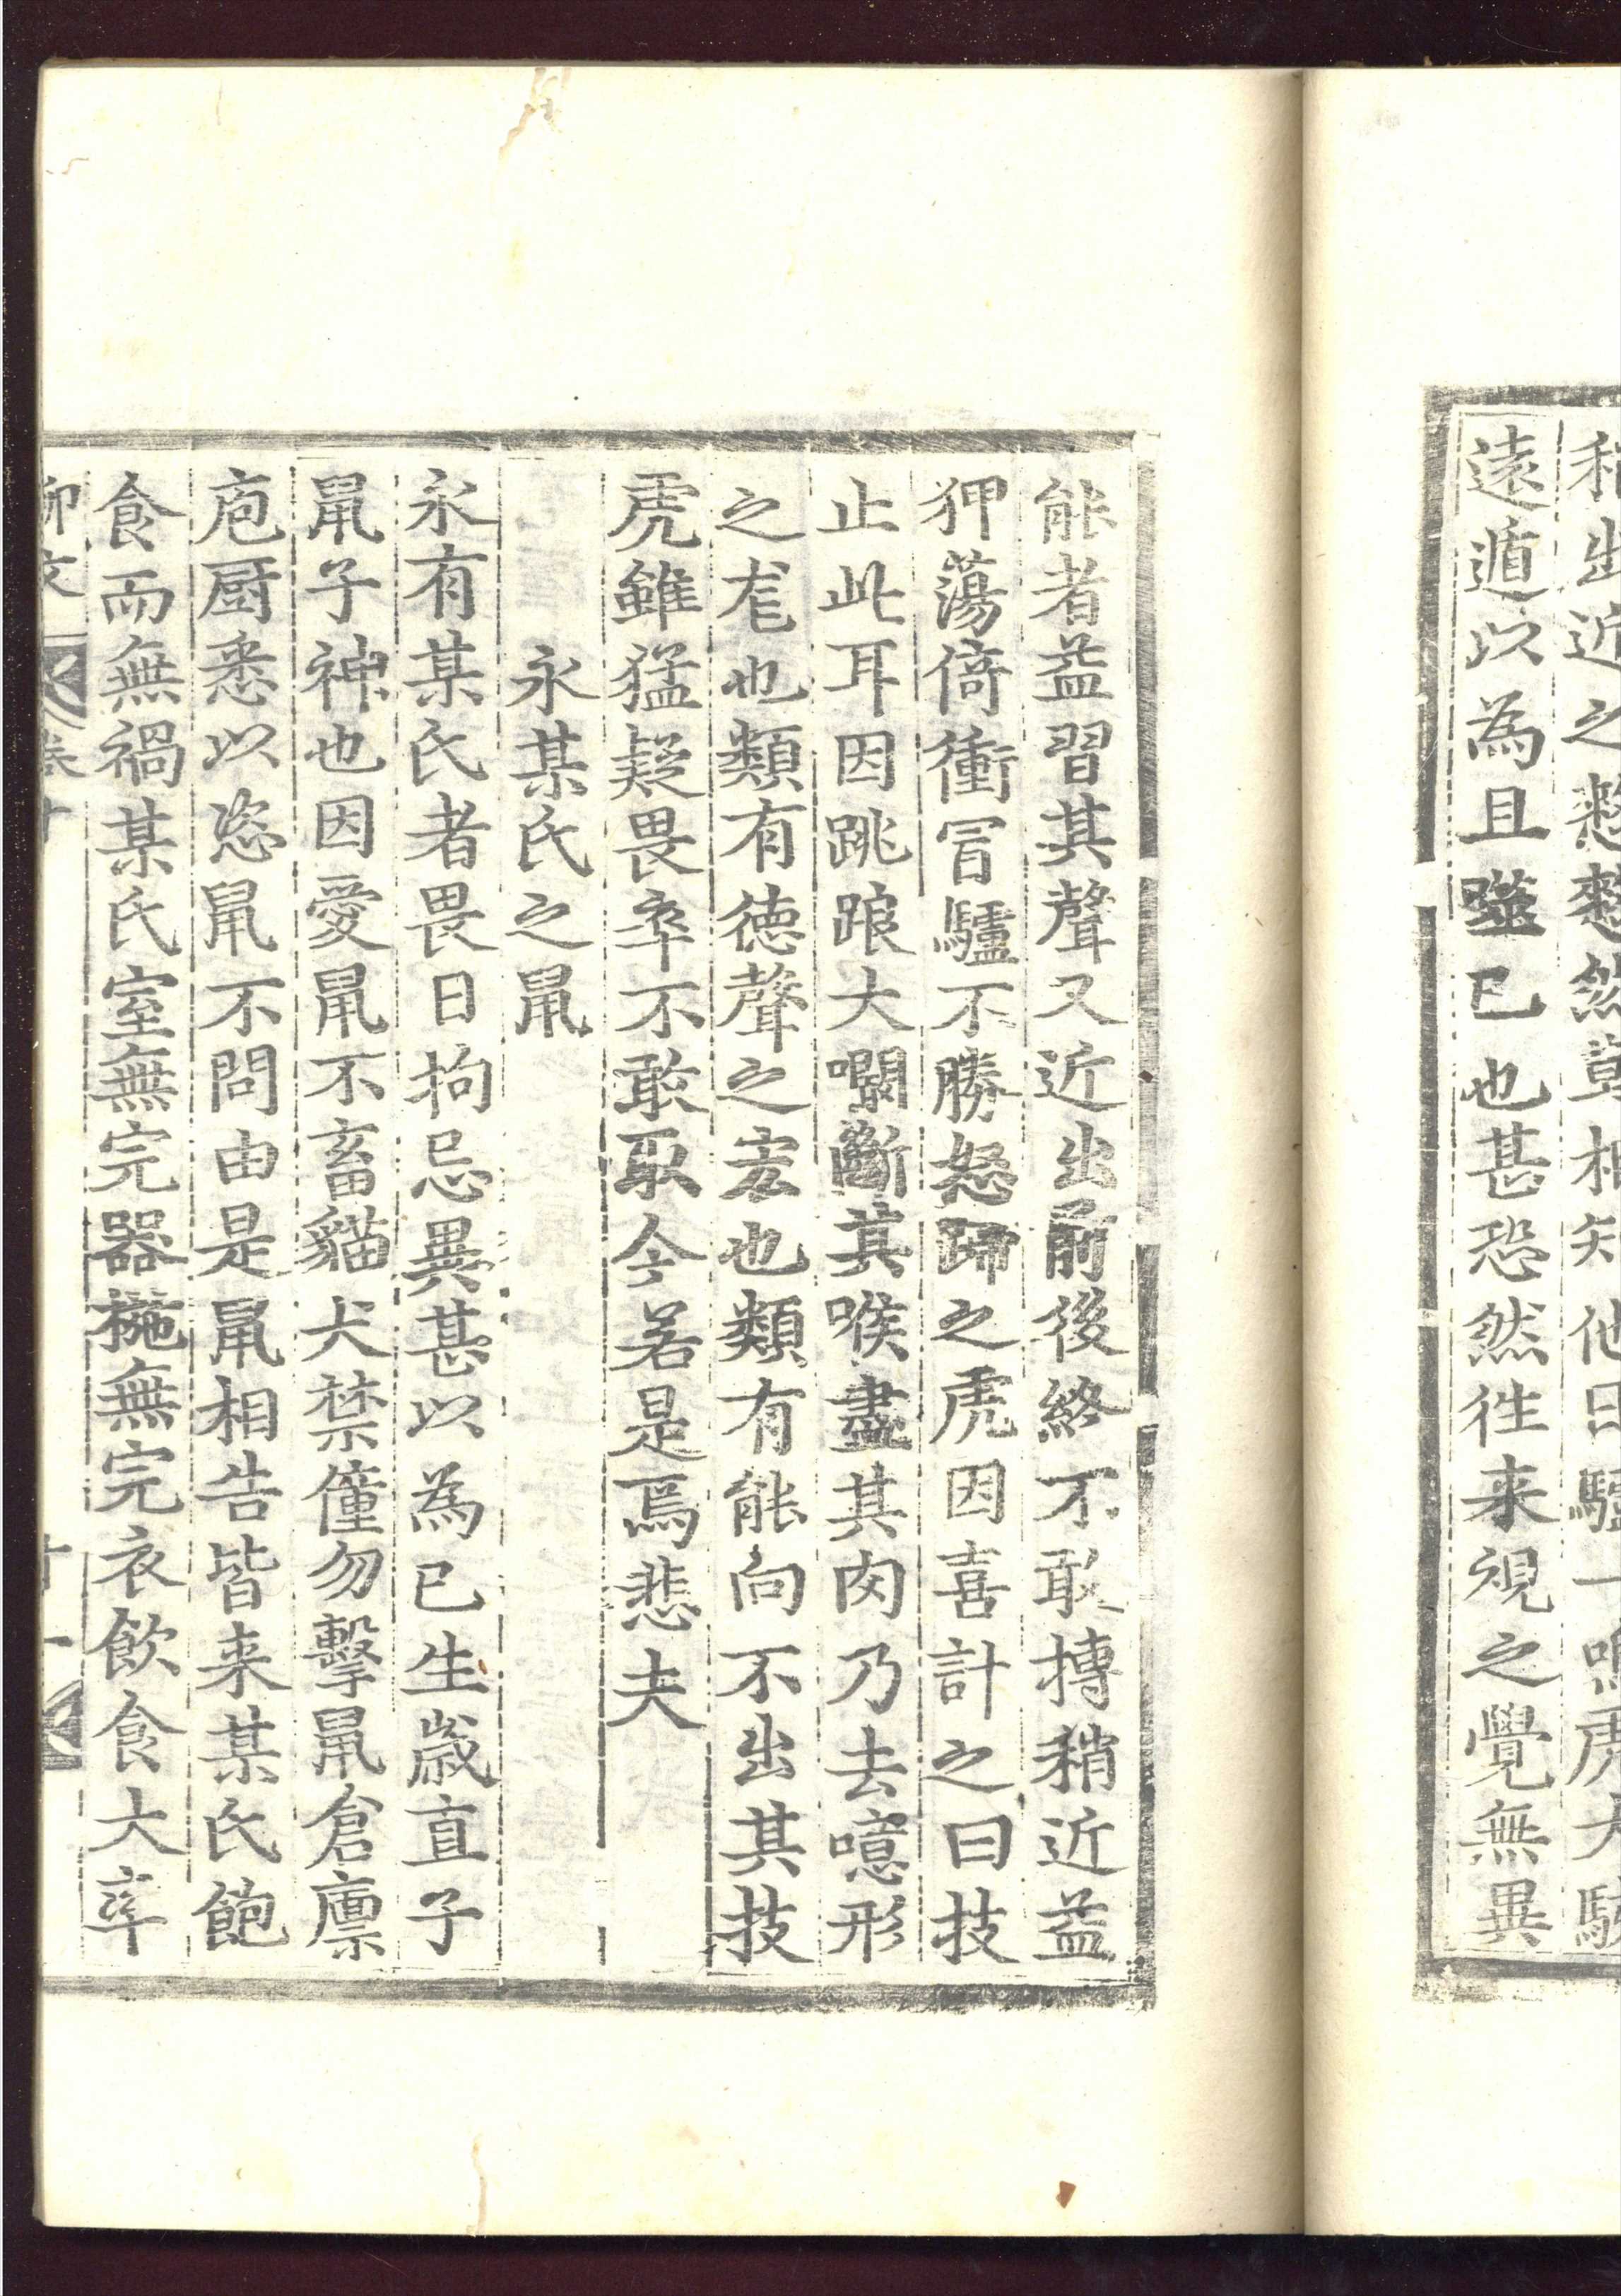 稍出近之憖憖然莫相知他日驢一鳴虎大駭
遠遁以為且噬已也甚恐然徃来視之覺無異
能者益習其聲又近出前後終不敢搏稍近益
狎蕩倚衝冐驢不勝怒蹄之虎因喜計之曰技
止此耳因跳踉大㘚斷其喉盡其肉乃去噫形
之尨也類有徳聲之宏也類有能向不出其技
虎雖猛疑畏率不敢取今若是焉悲夫
永某氏之鼠
永有某氏者畏日拘忌異甚以為已生歳直子
鼠子神也因愛鼠不畜猫犬禁僮勿擊鼠倉廪
庖厨悉以恣鼠不問由是鼠相告皆来某氏飽
食而無禍某氏室無完器椸無完衣飲食大率
柳文 卷十 十一